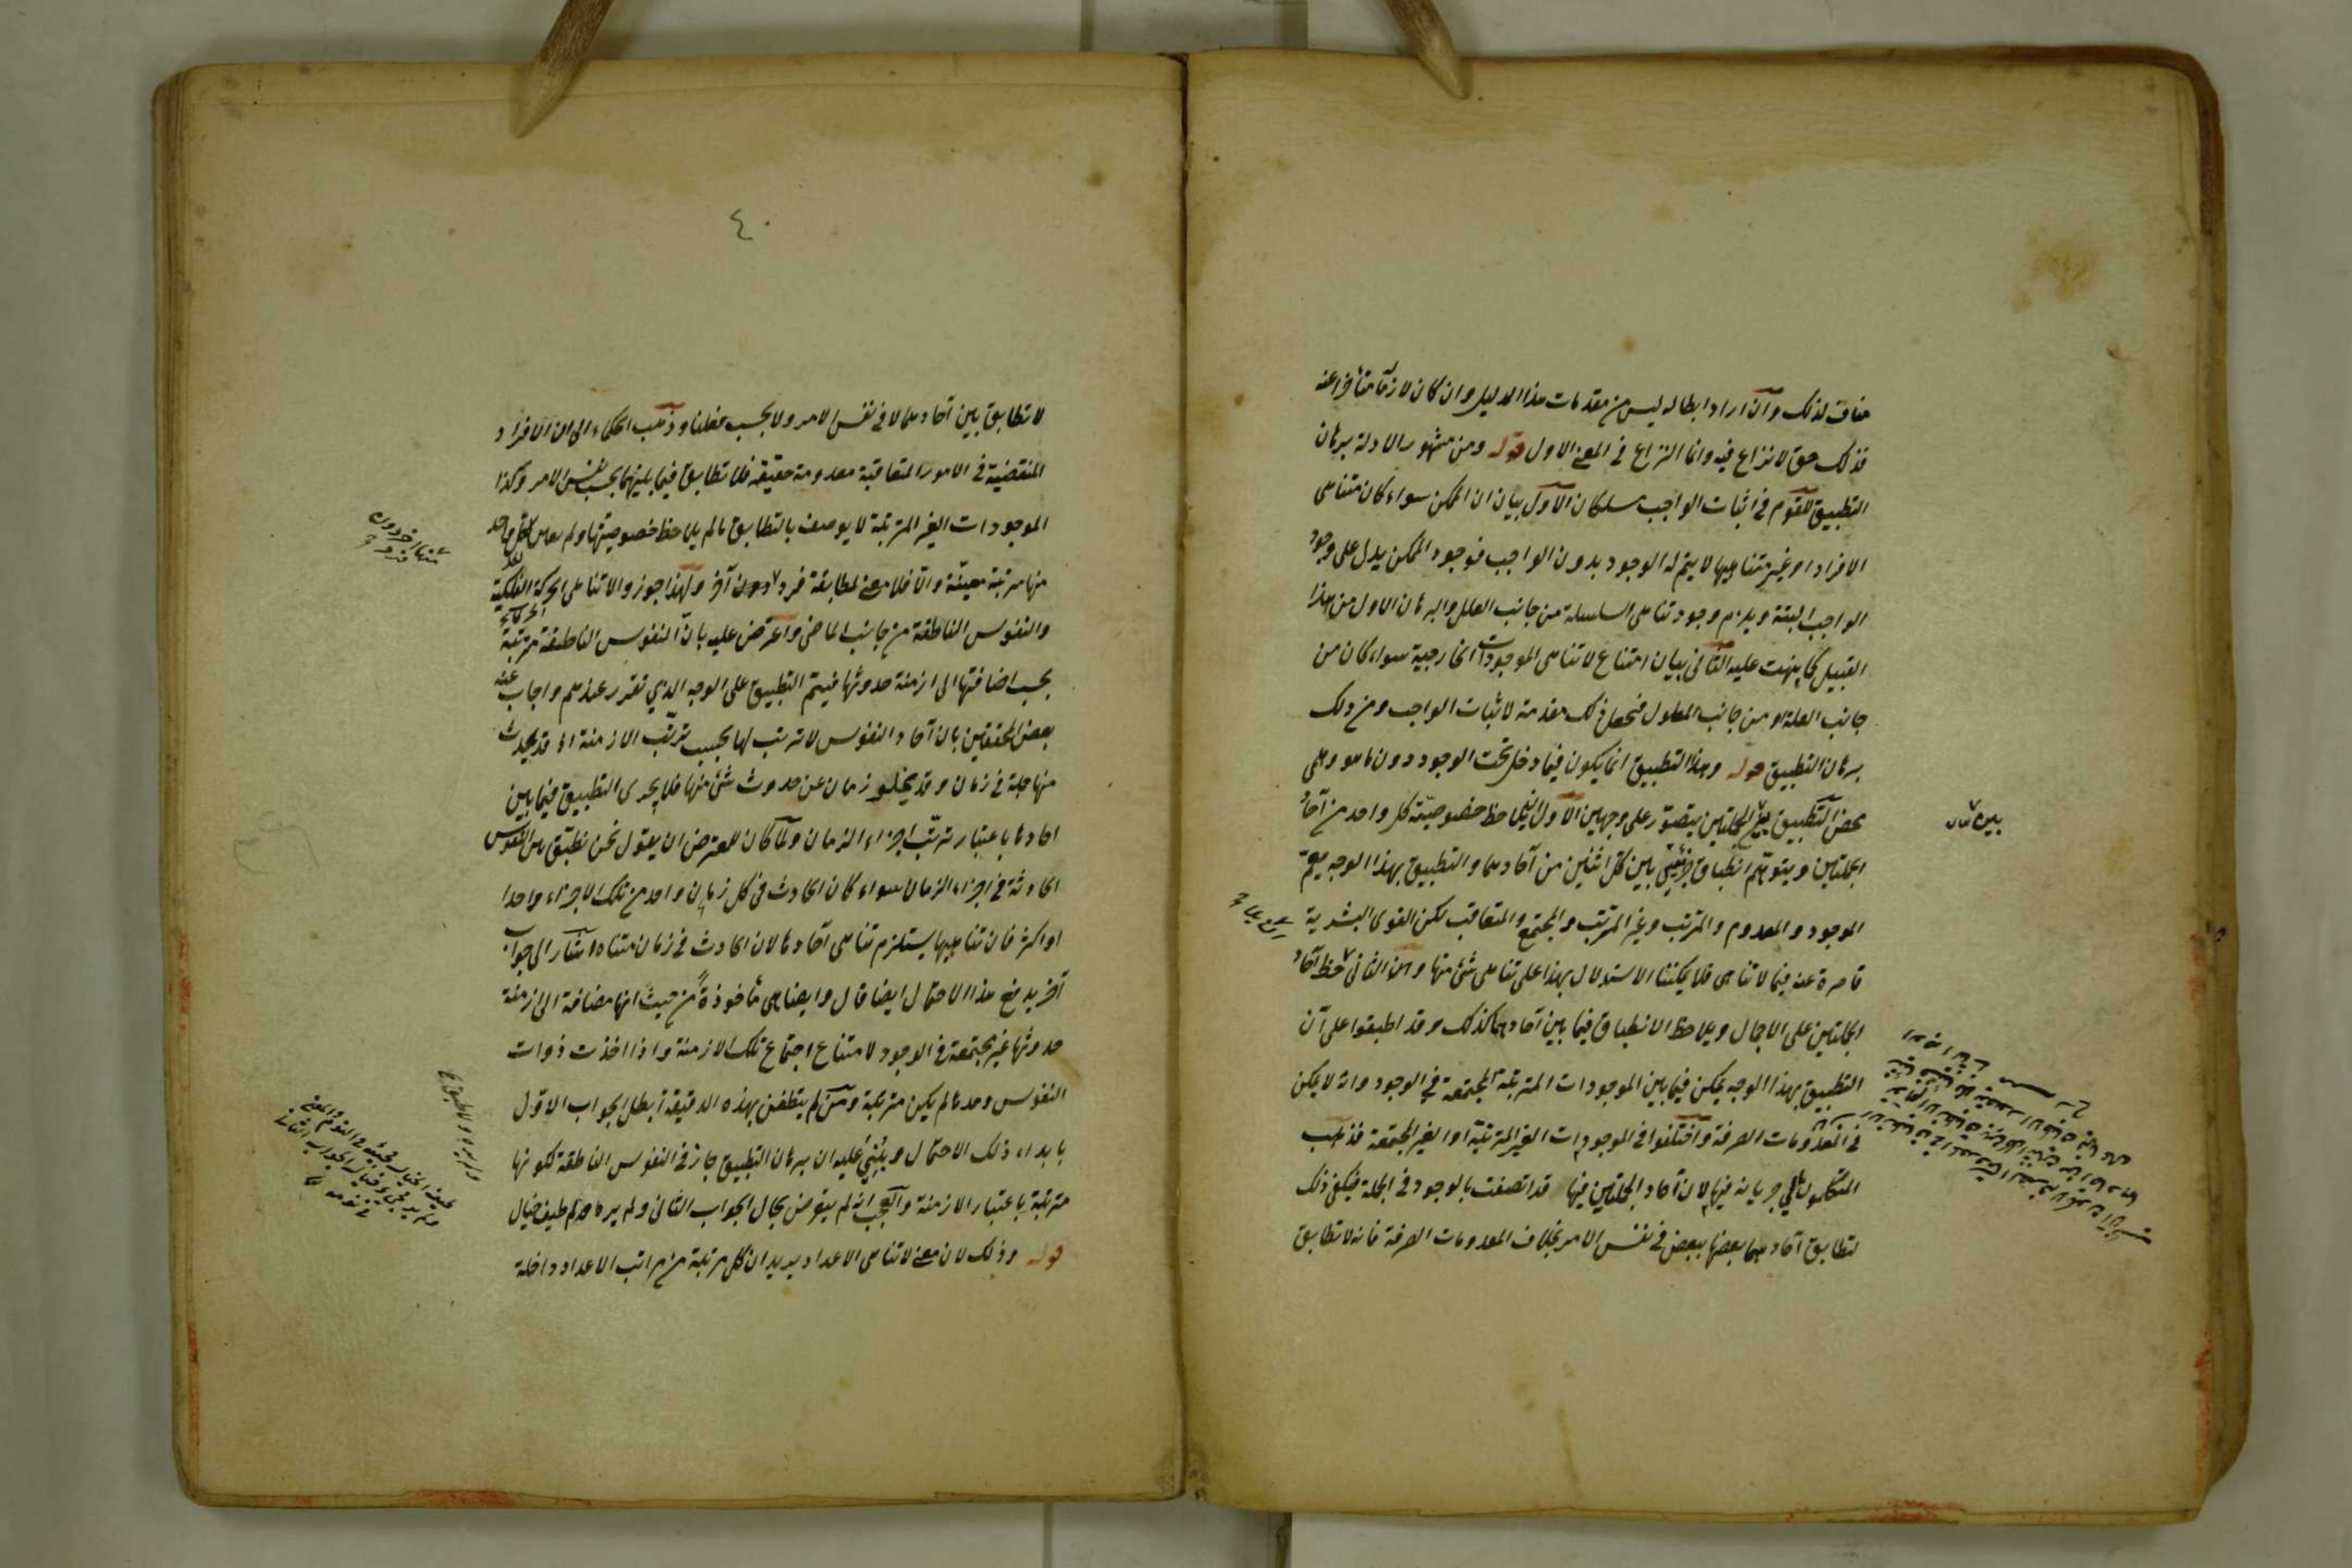 مناف لذلك وان اراد ابطاله ليس من مقدمات هذا الدليل وان كان لازما متأخرا عنه
فذلك حق لا نزاع فيه وانما النزاع في المعنى الاول قوله ومن مشهور الادلة برهان
التطبيق للقوم في اثبات الواجب مسلكان الاول بيان ان الممكن سواء كان متناهى
الافراد او غير متناهيها لا يتم له الوجود بدون الواجب فوجود الممكن يدل على وجود
الواجب البتة ويلزم وجود تناهى السلسلة من جانب العلل والبرهان الاول من هذا
القبيل كما نبهت عليه الثاني بيان امتناع لا تناهى الموجودات الخارجية سواء كان من
جانب العلة او من جانب المعلول فنجعل ذلك مقدمة لاثبات الواجب ومن ذلك
برهان التطبيق قوله وهذا التطبيق انما يكون فيما دخل تحت الوجود دون ما هو وهمى
محض التطبيق بين الجملتين يتصور على وجهين الاول ان يلاحظ خصوصية كل واحد من آحاد
الجملتين ويتوهم انطباق بين كل اثنين من آحادهما والتطبيق بهذا الوجه يعم
الموجود والمعدوم والمرتب وغير المرتب والمجتمع والمتعاقب لكن القوى البشرية
قاصرة عنه فيما لا تناهى فلا يمكننا الاستدلال بهذا على تناهى شئ منها والثاني حظ آحاد
الجملتين على الاجمال ويلاحظ الانطباق فيما بين آحادهما كذلك وقد اطبقوا على ان
التطبيق بهذا الوجه يمكن فيما بين الموجودات المترتبة المجتمعة في الوجود وانه لا يمكن
في المعدومات الصرفة واختلفوا في الموجودات الغير المترتبة او الغير المجتمعة فذهب
المتكلمون الى جريانه فيها لان آحاد الجملتين فيها قد اتصفت بالوجود في الجملة فيكفى ذلك
لتطابق آحادهما بعضها ببعض في نفس الامر بخلاف المعدومات الصرفة فانه لا تطابق
٤٠
لا تطابق بين آحادهما لا في نفس الامر ولا بحسب فعلنا وذهب الحكماء الى ان الافراد
المنقضية في الامور المتعاقبة معدومة حقيقة فلا تطابق فيما بينها بحسب نفس الامر وكذا
الموجودات الغير المترتبة لا يوصف بالتطابق ما لم يلاحظ خصوصيتها ولم لكل واحد
منها مرتبة معينة والا فلا معنى لمطابقة فرد دون آخر ولهذا جوزوا لا تناهى الحركة الفلكية
والنفوس الناطقة من جانب الماضى واعترض عليه بان النفوس الناطقة مترتبة
بحسب اضافتها الى ازمنة حدوثها فيتم التطبيق على الوجه الذي تقرر عندهم واجاب عنه
بعض المحققين بان آحاد النفوس لا ترتب لها بحسب ترتب الازمنة اذ قد يحدث
منها جملة في زمان وقد يخلو زمان عن حدوث شئ منها فلا يجرى التطبيق فيما بين
احادها باعتبار ترتب اجزاء الزمان ولما كان للمعترض ان يقول نحن نطبق بين النفوس
الحادثة في اجزاء الزمان سواء كان الحادث في كل زمان واحد من تلك الاجزاء واحدا
او اكثر فان تناهيها يستلزم تناهى آحادها لان الحادث في زمان متناه اشار الى جواب
آخر يدفع هذا الاحتمال ايضا قال وايضا هى مأخوذة من حيث انها مضافة الى ازمنة
حدوثها غير مجتمعة في الوجود لامتناع اجتماع تلك الازمنة واذا اخذت ذوات
النفوس وحدها لم يكن مترتبة ومن لم يتفطن بهذه الدقيقة ابطل الجواب الاول
بابداء ذلك الاحتمال وبنى عليه ان برهان التطبيق جار في النفوس الناطقة لكونها
مترتبة باعتبار الازمنة والعجب انه لم يتعرض بحال الجواب الثانى ولم ير ما قدم طيف خيال
قوله وذلك لان معنى لا تناهى الاعداد يريد ان كل مرتبة من مراتب الاعداد داخلة